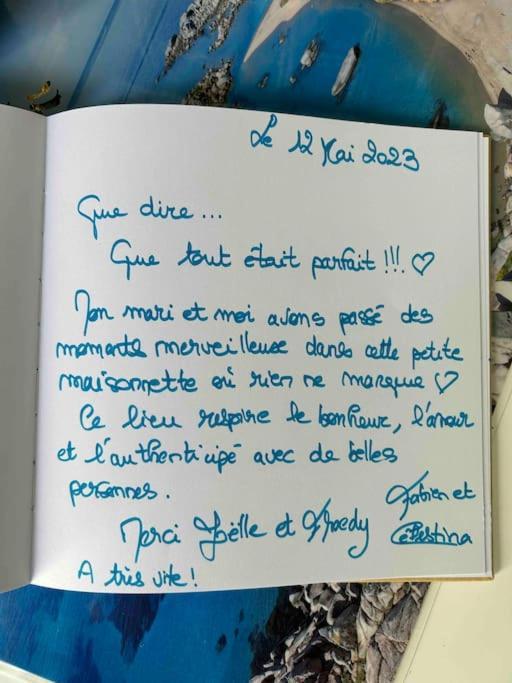 Le 12 Mai 2023
Que dire...
Que tout était parfait !!! ♡
Mon mari et moi avons passé des
moments merveilleuse dans cette petite
maisonnette où rien ne manque ♡
Ce lieu respire le bonheur, l'amour
et l'authenticipé avec de belles
personnes.
Fabien et
Merci Joëlle et Thoedy Celestina
A très vite !